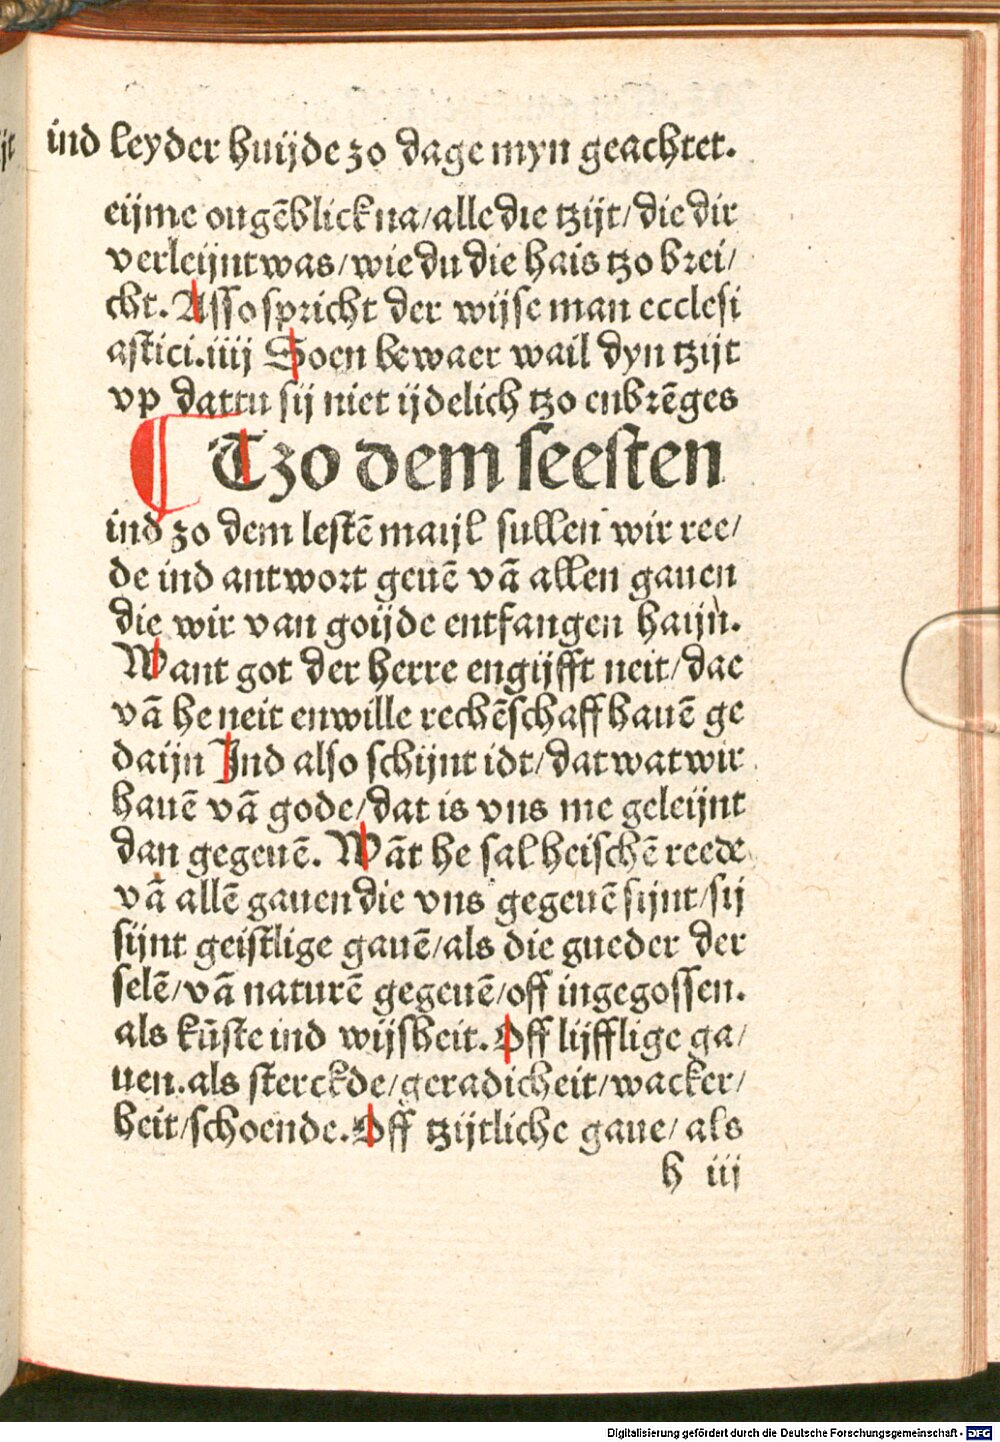 ind leyder huijde zo dage myn geachtet.
eijme ougēblick na/alle die tzijt/die dir
verleijnt was/wie du die hais tzo brei/
cht. Also spricht der wijse man ecclesi
astici.iiij Soen bewaer wail dyn tzijt
vp dattu sij niet ijdelich tzo enbrēges
Tzo dem seesten
ind zo dem lestē maijl sullen wir ree/
de ind antwort geuē vā allen gauen
die wir van goijde entfangen haijn.
Want got der herre engijfft neit/dae
vā he neit enwille rechēschaff hauē ge
daijn Ind also schijnt idt/dat wat wir
hauē vā gode/dat is vns me geleijnt
dan gegeuē. Wāt he sal heischē reede
vā allē gauen die vns gegeuē sijnt/sij
sijnt geistlige gauē/als die gueder der
selē/vā naturē gegeuē/off ingegossen.
als kūste ind wijsheit. Off lijfflige ga/
uen.als sterckde/geradicheit/wacker/
heit/schoende. Off tzijtliche gaue/als
h iij
Digitalisierung gefördert durch die Deutsche Forschungsgemeinschaft - DFG